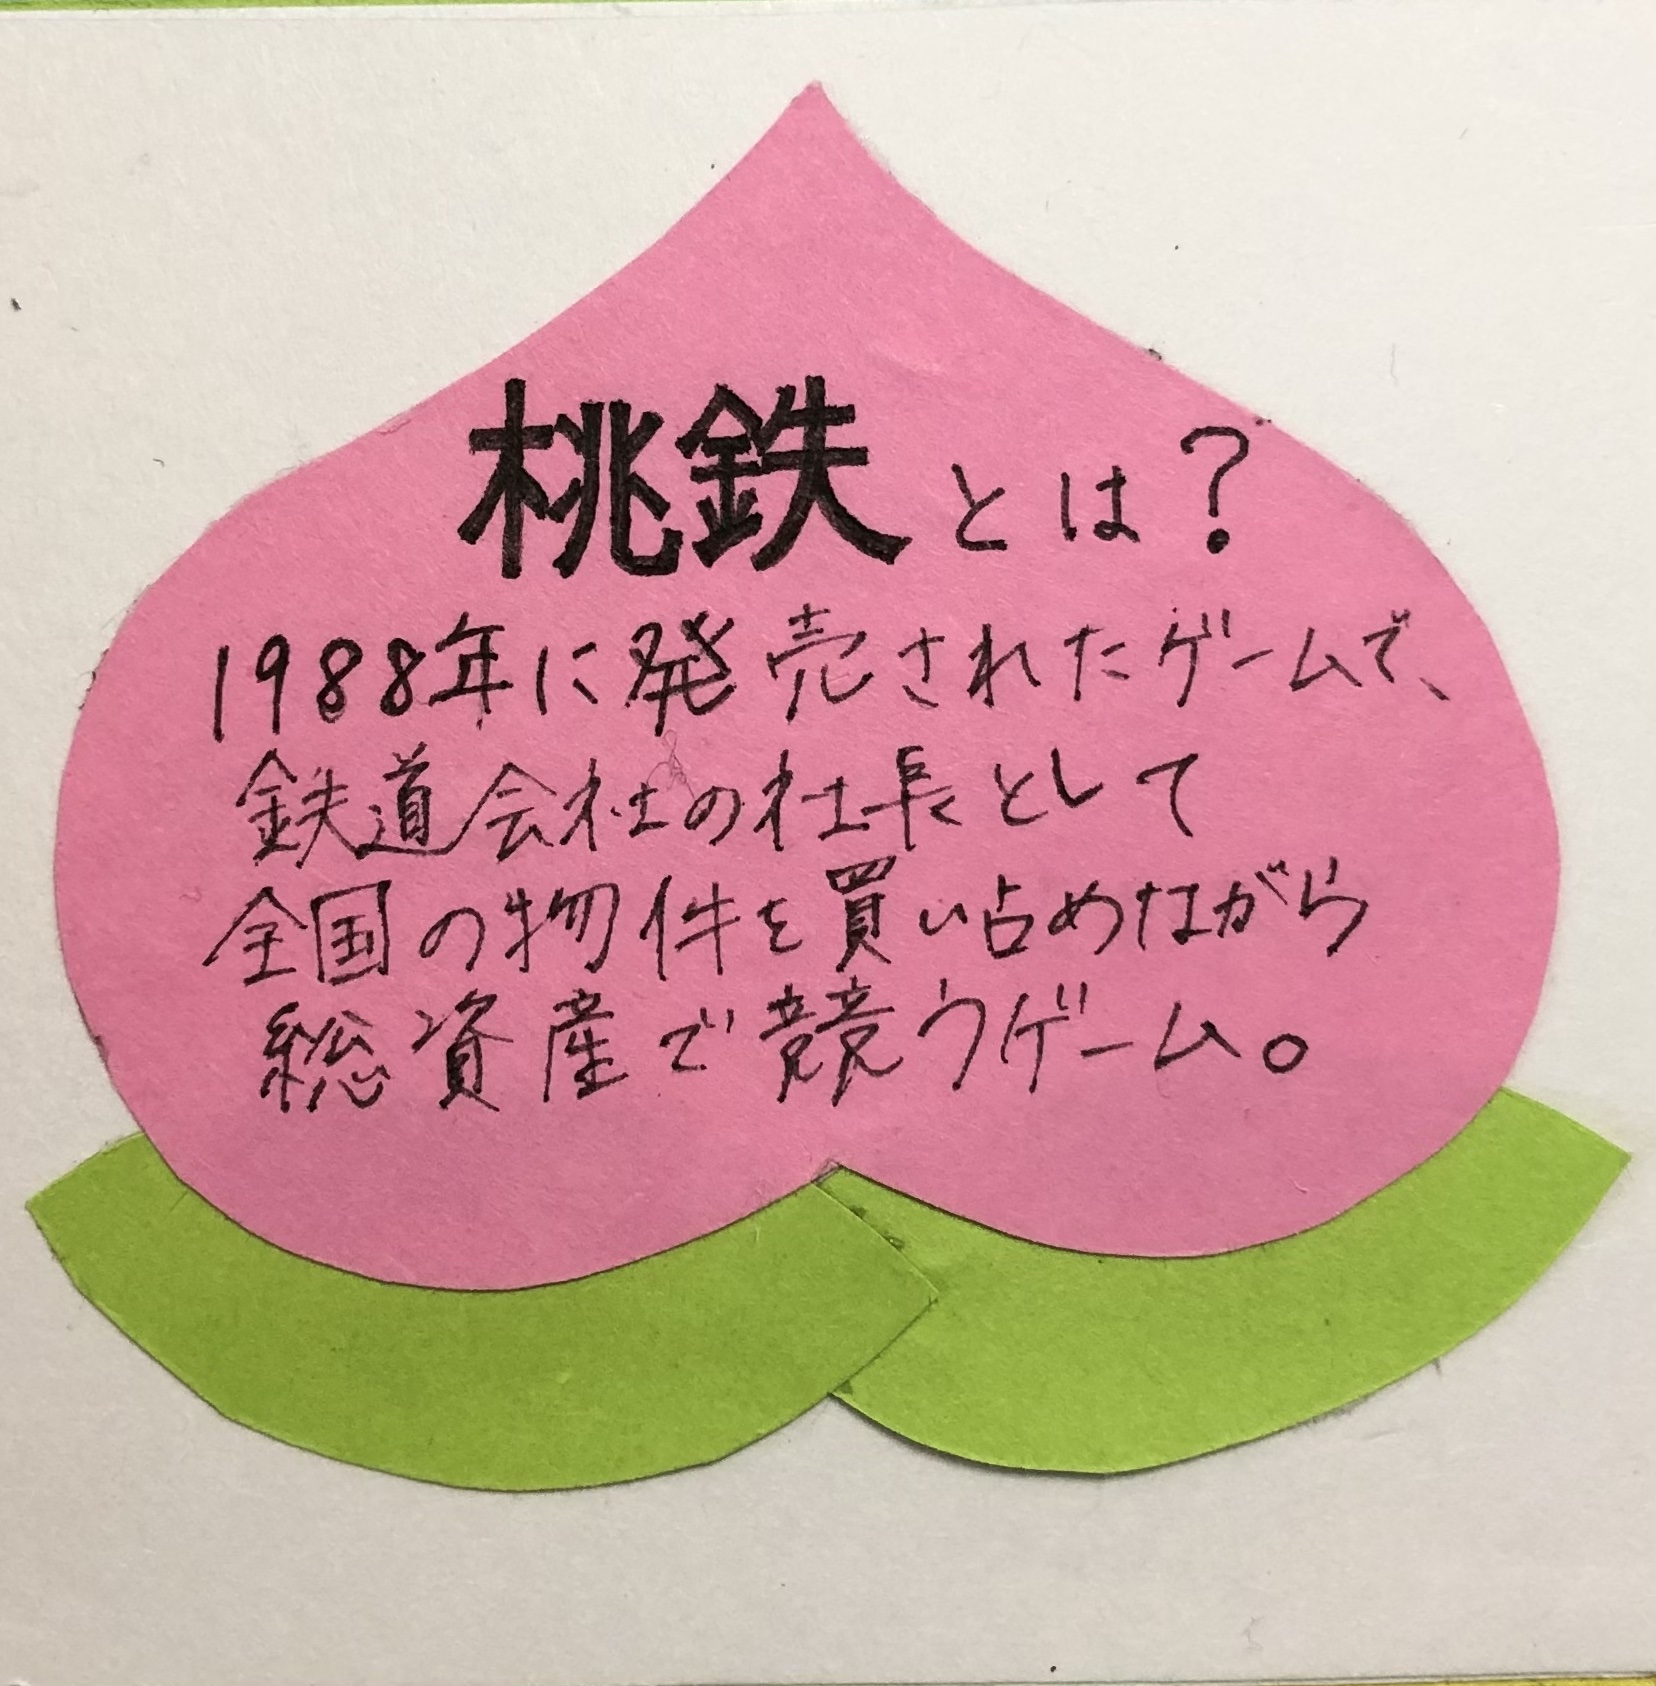 桃鉄とは?
1988年に発売されたゲームで、
鉄道会社の社長として
全国の物件を買い占めながら
総資産で競うゲーム。